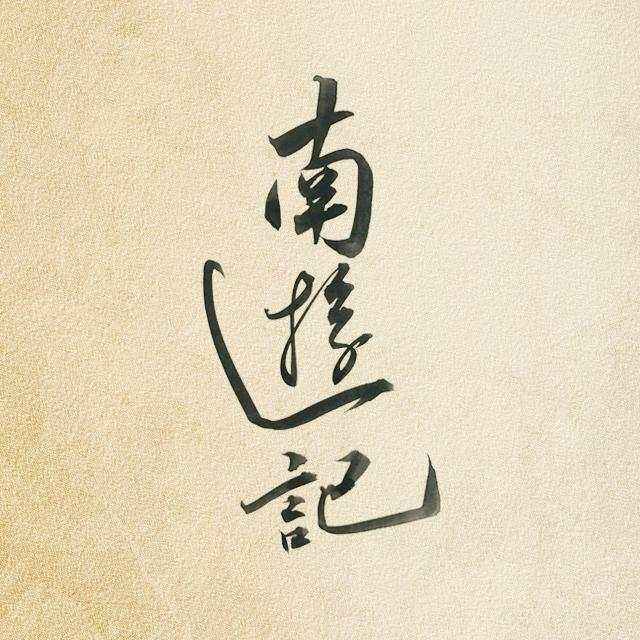 南遊記